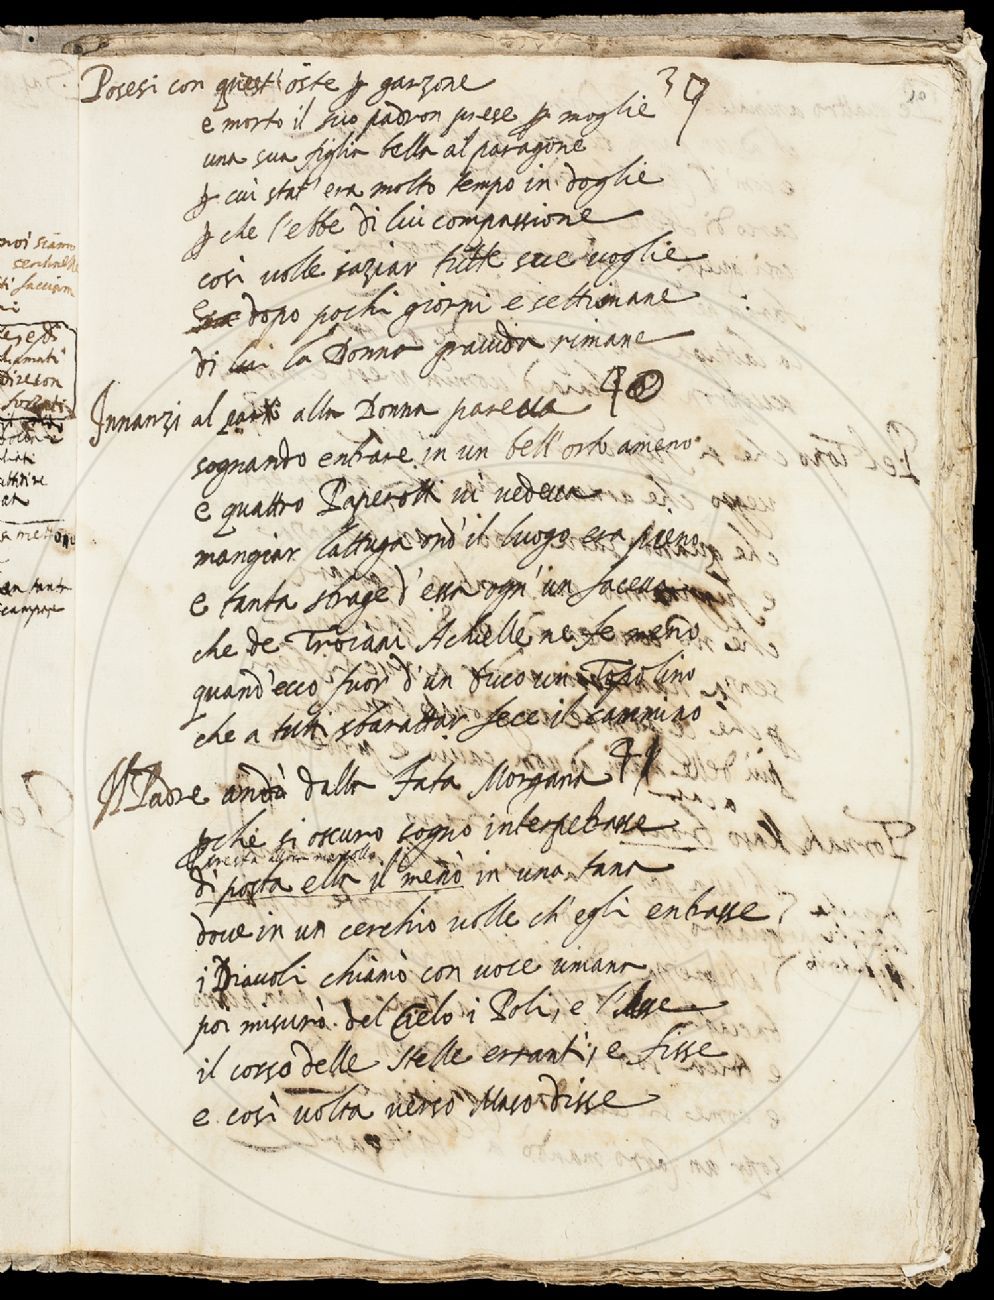 Posesi con quest'oste p garzone 39
e morto il suo padron prese p moglie
una sua figlia bella al paragone
p cui stat'era molto tempo in doglie
p che l'ebbe di lui compassione
così volle saziar tutte sue voglie
E dopo pochi giorni e settimane
di lui la Donna gravida rimane
Innanzi al parto alla Donna pareva 40
sognando entrare in un bell'orto ameno
e quattro Paperotti ivi vedeva
mangiar lattuga ond'il luogo era pieno
e tanta strage d'essa ogn'un faceva
che de Troiani Achille ne fe meno
quand'ecco fuor d'un buco un Topolino
che a tutti sbarattar fece il cammino
Il Padre andò dalla Fata Morgana 41
pche si oscuro sogno interpetrasse
di posta ella il menò in una tana
dove in un cerchio volle ch'egli entrasse
i Diavoli chiamò con voce umana
poi misurò del Cielo i Poli, e l'Asse
il corso delle stelle erranti, e fisse
e così volta verso Maso disse